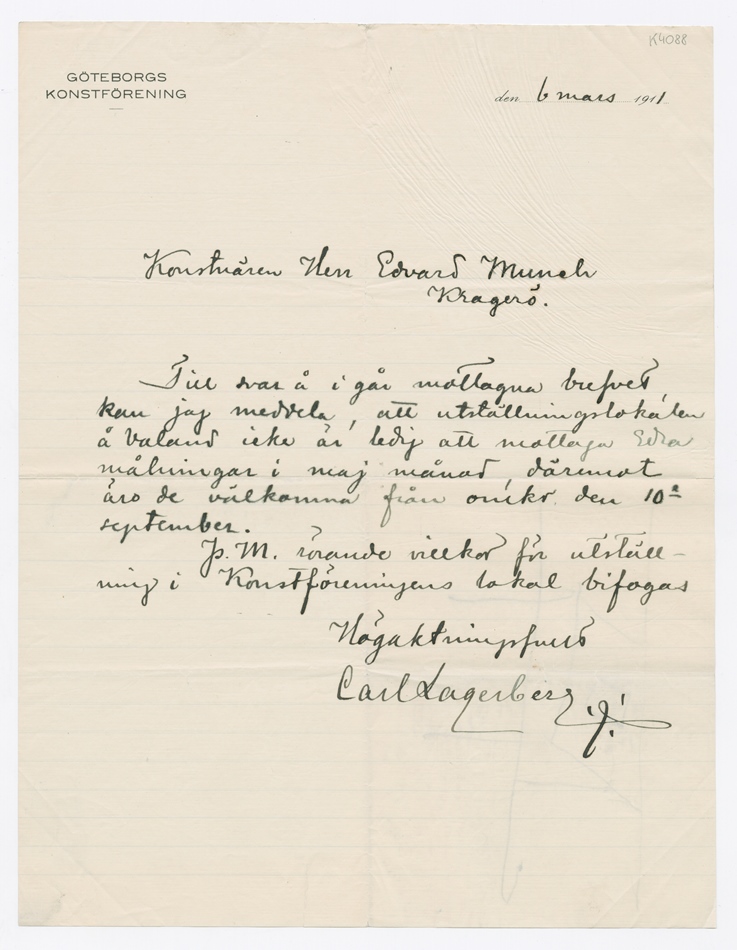 K4088
GÖTEBORGS
KONSTFÖRENING
den 6 mars 1911
Konstnären Herr Edvard Munch
Kragerö.
Till svar å i går mottagna brefvet,
kan jag meddela, att utställningslokalen
å Valand icke är ledig att mottaga Edra
målningar i maj månad, däremot
äro de välkomna från omkr. den 10e
september.
P.M. rörande villkor för utställ-
ning i Konstföreningens lokal bifogas
Högaktningsfullt
Carl Lagerberg